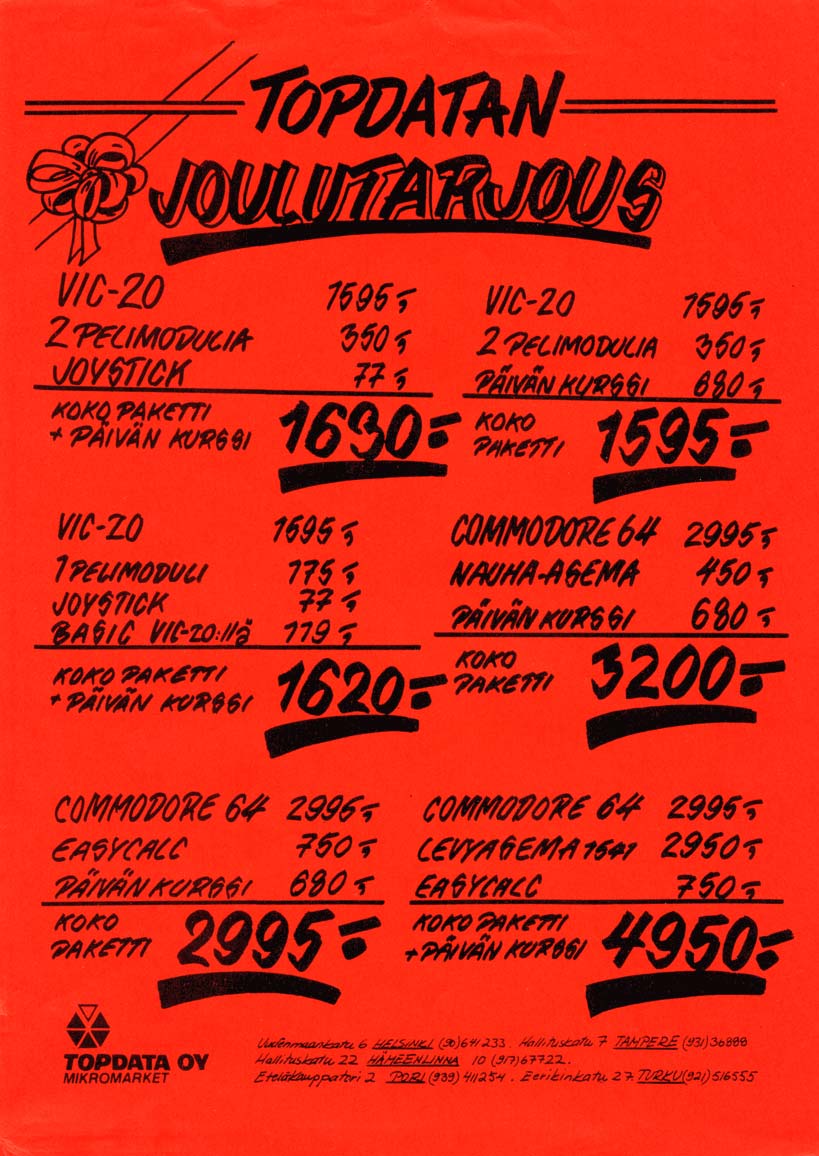 TOPDATAN
JOULUTARJOUS
VIC-20 1595,-
2 PELIMODULIA 350,-
JOYSTICK 77,-
KOKO PAKETTI
+ PÄIVÄN KURSSI 1630,-
VIC-20 1595,-
2 PELIMODULIA 350,-
PÄIVÄN KURSSI 680,-
KOKO
PAKETTI 1595,-
VIC-20 1595,-
1 PELIMODULI 175,-
JOYSTICK 77,-
BASIC VIC-20:llä 119,-
KOKO PAKETTI
+ PÄIVÄN KURSSI 1620,-
COMMODORE 64 2995,-
NAUHA-ASEMA 450,-
PÄIVÄN KURSSI 680,-
KOKO
PAKETTI 3200,-
COMMODORE 64 2995,-
EASYCALC 750,-
PÄIVÄN KURSSI 680,-
KOKO
PAKETTI 2995,-
COMMODORE 64 2995,-
LEVYASEMA 1541 2950,-
EASYCALC 750,-
KOKO PAKETTI
+ PÄIVÄN KURSSI 4950,-
TOPDATA OY
MIKROMARKET
Uudenmaankatu 6 HELSINKI (90)641 233. Hallituskatu 7 TAMPERE (931)36888
Hallituskatu 22 HÄMEENLINNA 10 (917)67722.
Eteläkauppatori 2 PORI (939) 411254. Eerikinkatu 27 TURKU (921)516555